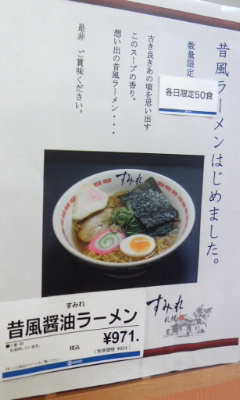 昔風ラーメンはじめました。
数量限定
各日限定50食
古き良きあの頃を思い出す
このスープの香り。
想い出の昔風ラーメン・・・
是非 ご賞味ください。
すみれ
すみれ
札幌
すみれ
昔風醤油ラーメン
税込
¥971.